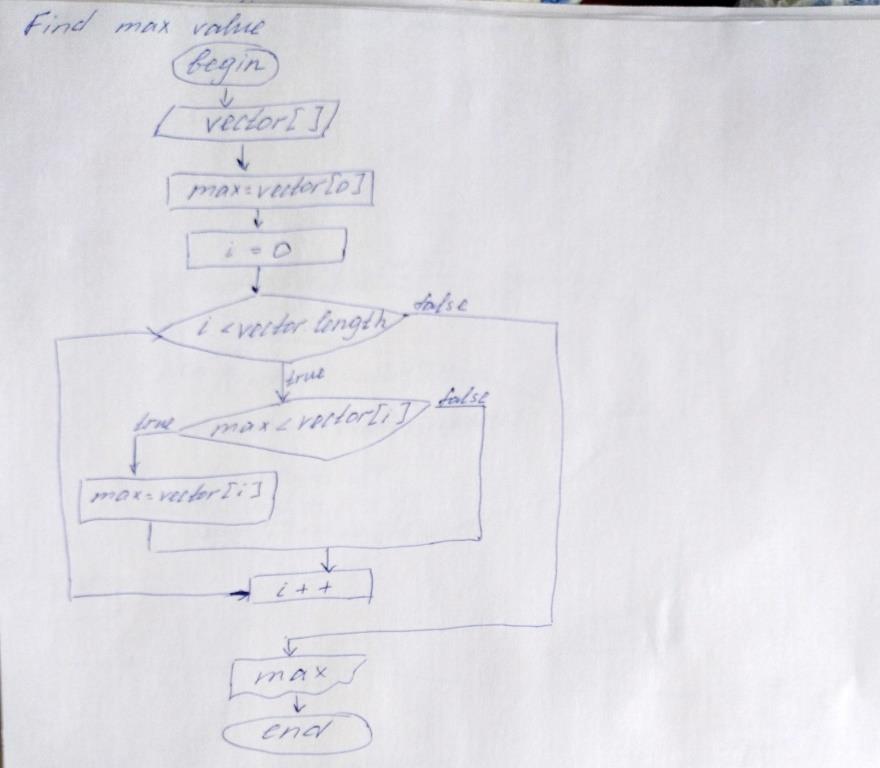 Find max value
begin
vector[ ]
max=vector[0]
i = 0
i < vector.length
false
true
max < vector[i]
false
true
max=vector[i]
i + +
max
end